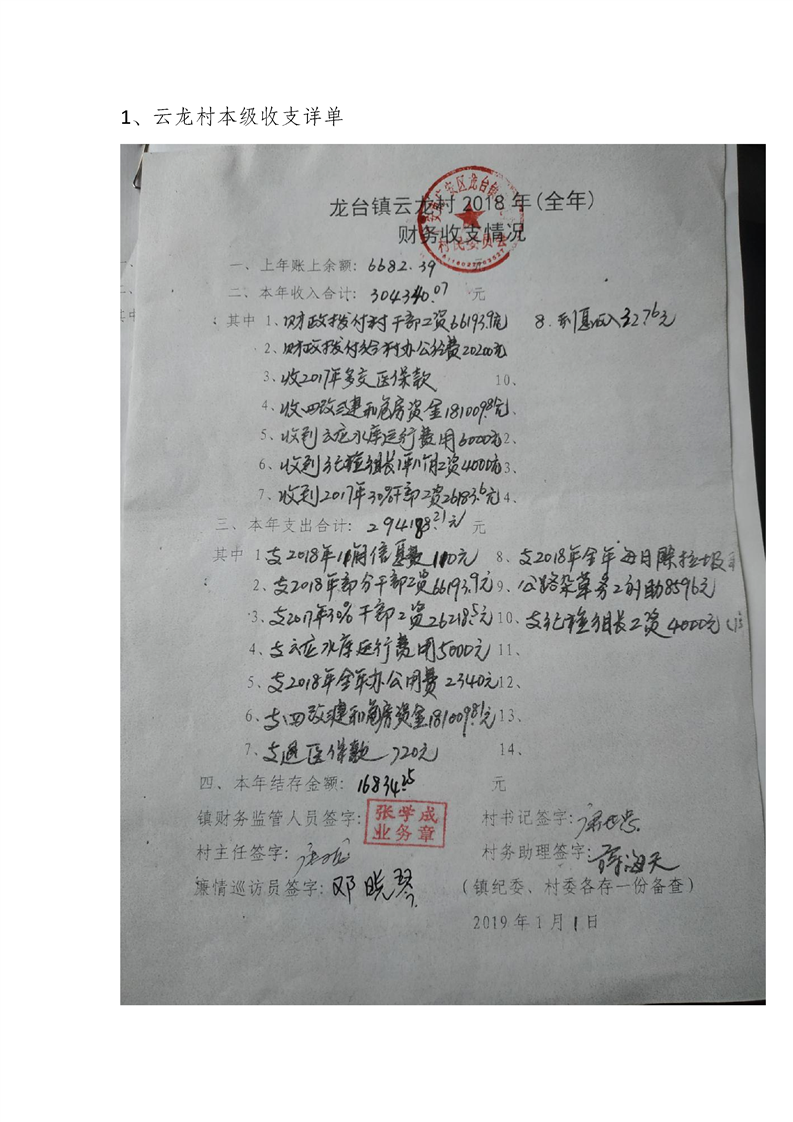 1、云龙村本级收支详单
龙台镇云龙村2018年(全年)
财务收支情况
村民委员会
一、上年账上余额: 6682.39
二、本年收入合计: 304340.07 元
其中 1、财政拨付村干部工资66193.9元 8、利息收入32.76元
2、财政拨付给村办公经费20200元
3、收2017年多交医保款 10、
4、收四改三建和危房资金181009.81元
5、收到云应水库运行费用6000元 2、
6、收到 组长 工资4000元 3、
7、收到2017年30%干部工资26183.6元 4、
三、本年支出合计: 294188.21元 元
其中 1、支2018年 信息款 110元 8、支2018年全年 垃圾
2、支2018年部分干部工资66193.9元 9、公路杂草务工补助8596元
3、支2017年30%干部工资26218.5元 10、支 组长工资4000元
4、支云应水库运行费用5000元 11、
5、支2018年全年办公用费2340元 12、
6、支四改三建和危房资金181009.81元 13、
7、支退医保款 720元 14、
四、本年结存金额: 16834.25 元
镇财务监管人员签字: 张学成 业务章 村书记签字:
村主任签字: 村务助理签字: 海天
廉情巡访员签字: 邓晓琴 (镇纪委、村委各存一份备查)
2019年1月1日